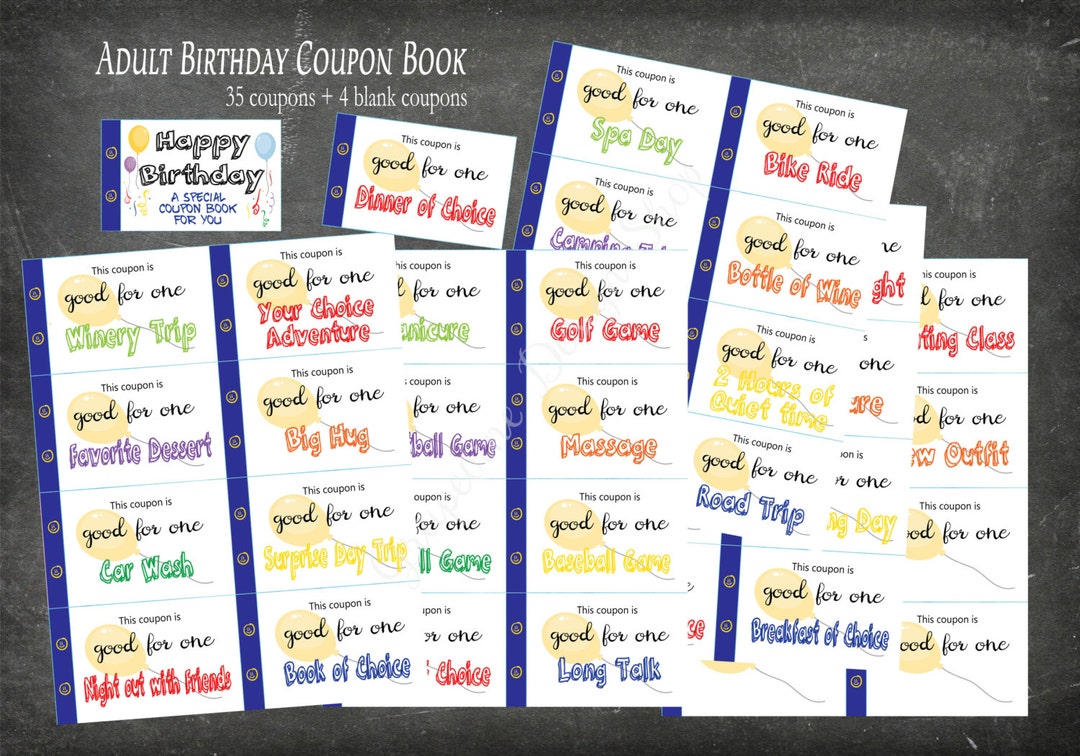 ADULT BIRTHDAY COUPON BOOK
35 coupons + 4 blank coupons
Happy
Birthday
A SPECIAL
COUPON BOOK
FOR YOU
This coupon is
good for one
Dinner of Choice
This coupon is
good for one
Spa Day
This coupon is
good for one
Bike Ride
This coupon is
good for one
Camping
This coupon is
good for one
Bottle of Wine
This coupon is
good for one
2 Hours of
Quiet time
This coupon is
good for one
Road Trip
This coupon is
good for one
Breakfast of Choice
This coupon is
good for one
Winery Trip
This coupon is
good for one
Your Choice
Adventure
This coupon is
good for one
Favorite Dessert
This coupon is
good for one
Big Hug
This coupon is
good for one
Car Wash
This coupon is
good for one
Surprise Day Trip
This coupon is
good for one
Night out with Friends
This coupon is
good for one
Book of Choice
coupon is
for one
anicure
coupon is
for one
ball Game
coupon is
for one
ll Game
coupon is
for one
Choice
This coupon is
good for one
Golf Game
This coupon is
good for one
Massage
This coupon is
good for one
Baseball Game
This coupon is
good for one
Long Talk
ne
ght
is
one
ure
on is
for one
ng Day
coupon is
for one
ting Class
coupon is
for one
ew Outfit
coupon is
good for one
coupon is
good for one